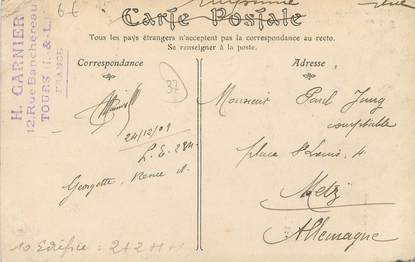 Carte Postale
Tous les pays étrangers n'acceptent pas la correspondance au recto.
Se renseigner à la poste.
Correspondance
Adresse
H. GARNIER
12, Rue Banchereau
TOURS (I.-&-L.)
FRANCE
37
24/12/09
Georgette,
Monsieur Paul Jung
comptable
place St Louis, 4
Metz
Allemagne